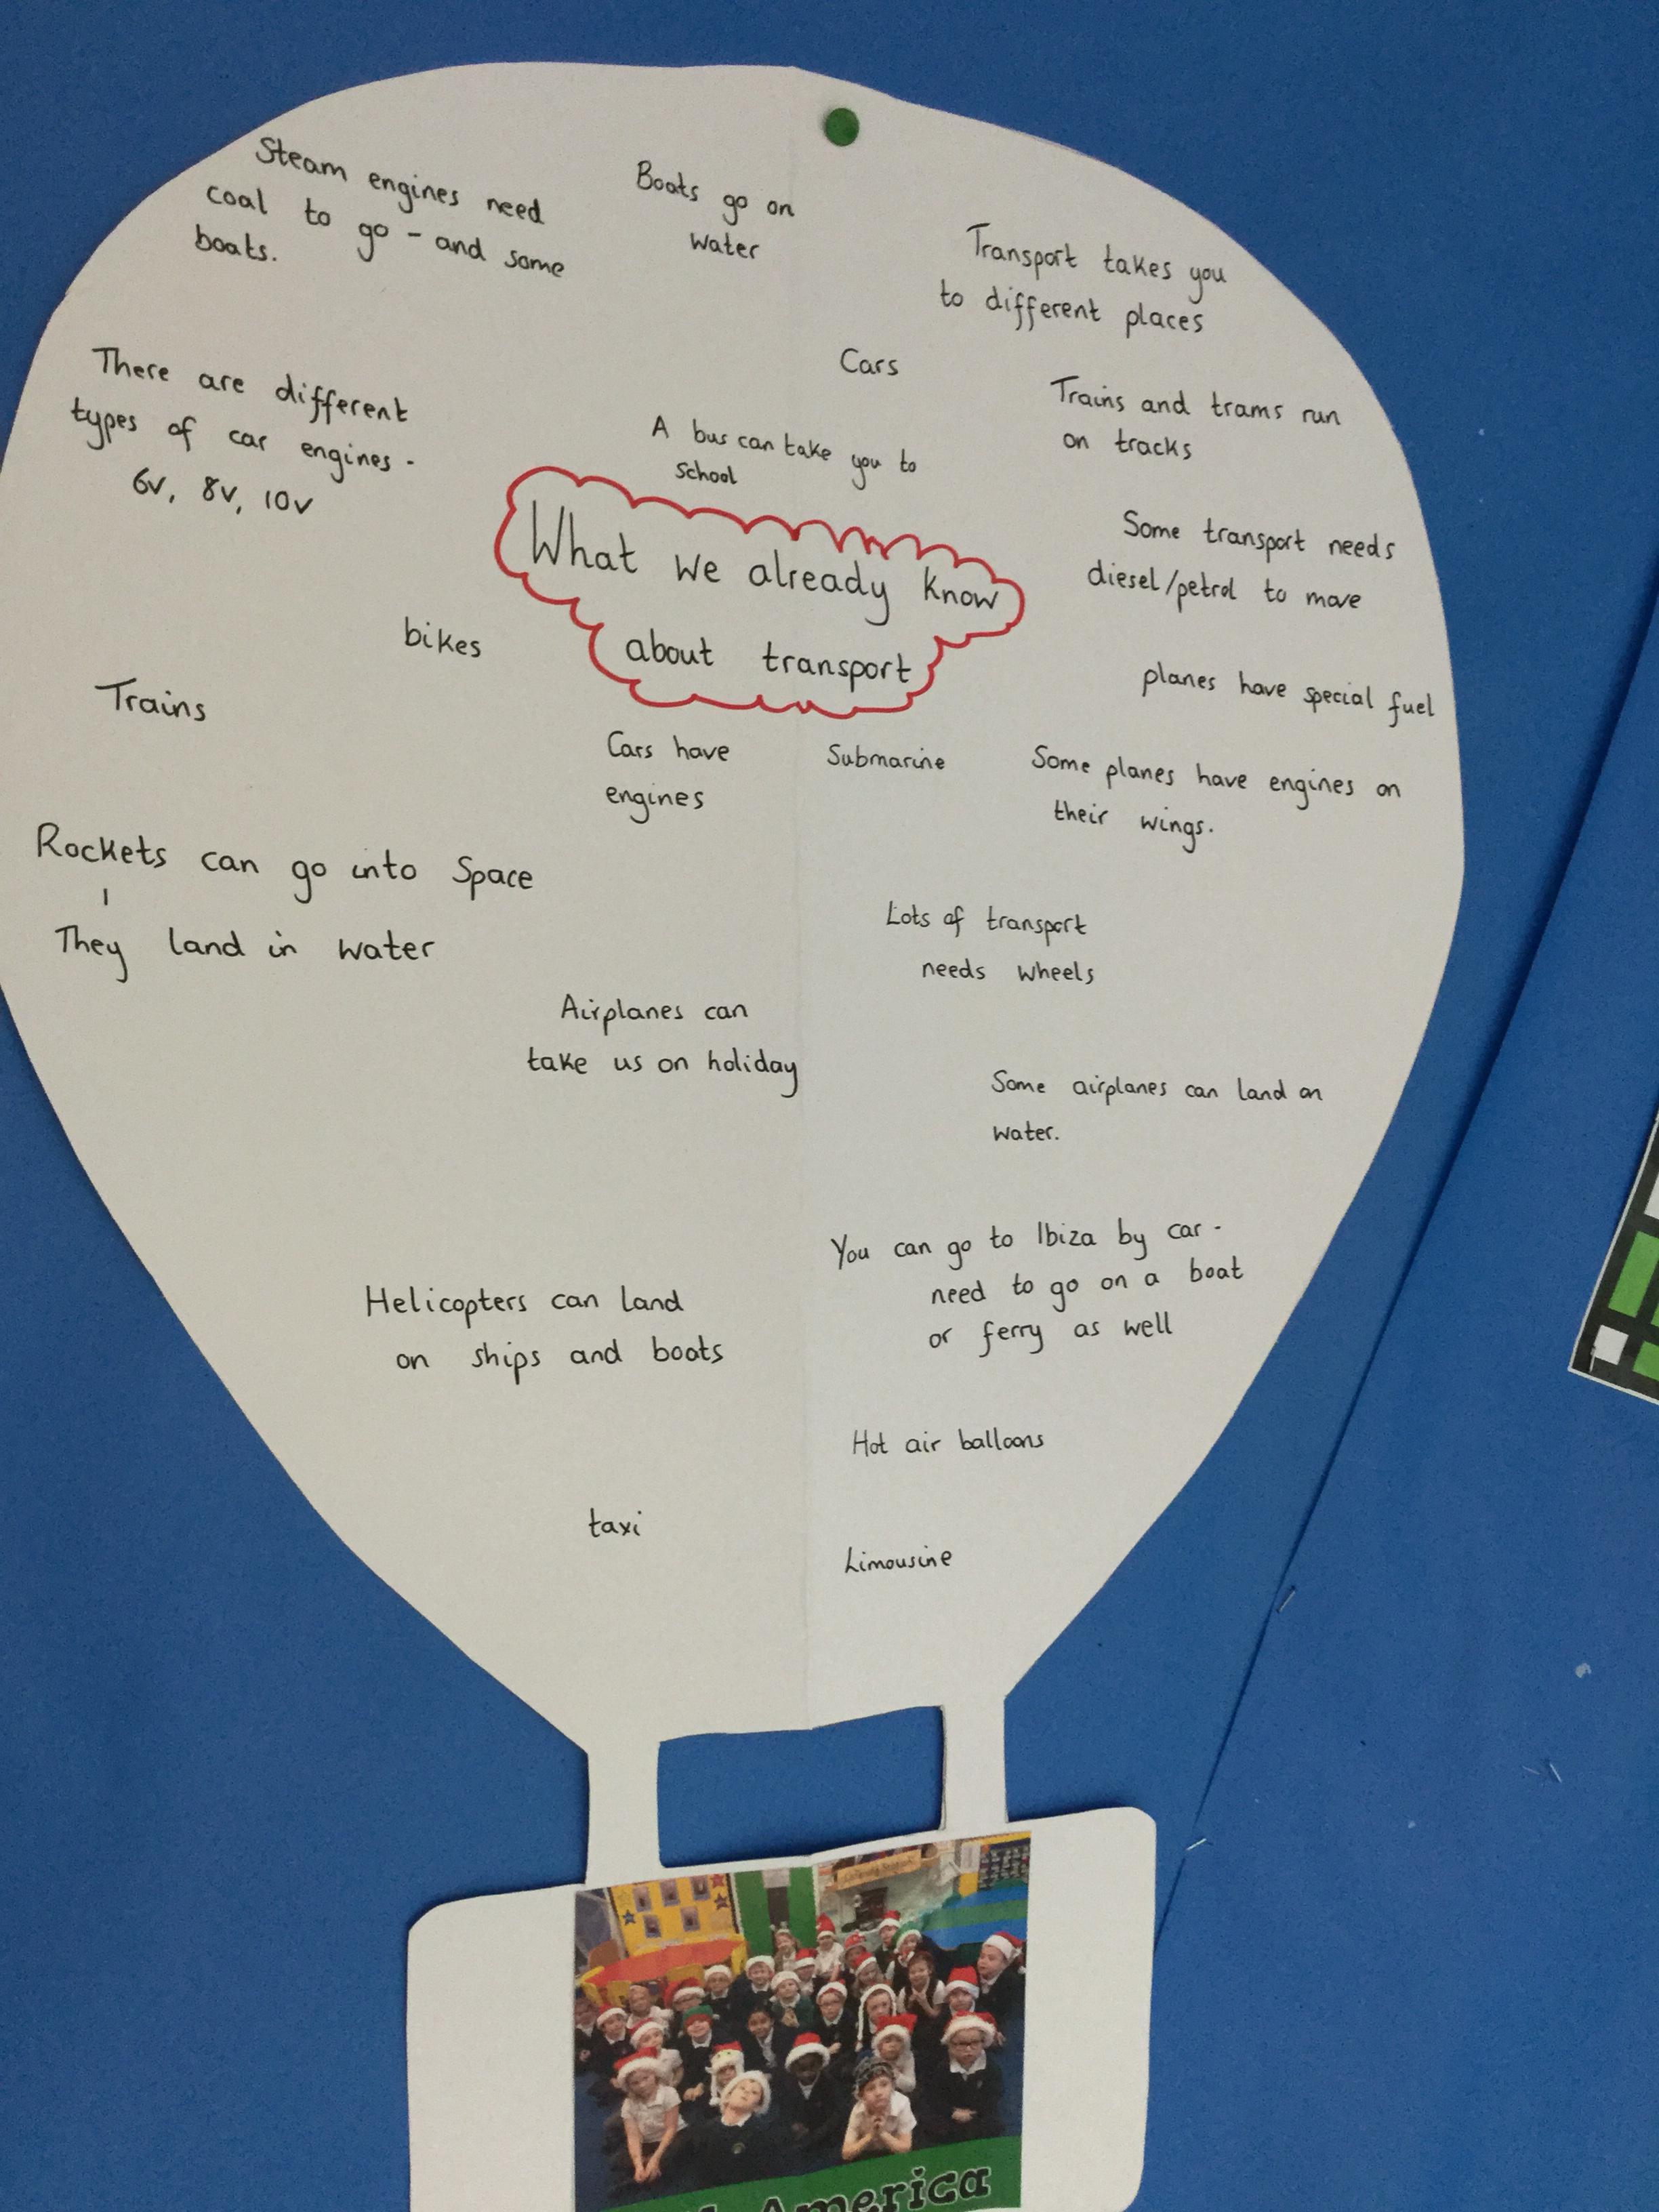 Steam engines need
coal to go - and some
boats.
Boats go on
water
Transport takes you
to different places
There are different
types of car engines -
6v, 8v, 10v
Cars
Trains and trams run
on tracks
A bus can take you to
school
Some transport needs
diesel/petrol to move
What we already know
about transport
bikes
Trains
planes have special fuel
Cars have
engines
Submarine
Some planes have engines on
their wings.
Rockets can go into Space
They land in water
Lots of transport
needs wheels
Airplanes can
take us on holiday
Some airplanes can land on
water.
You can go to Ibiza by car -
need to go on a boat
or ferry as well
Helicopters can land
on ships and boats
Hot air balloons
taxi
Limousine
America